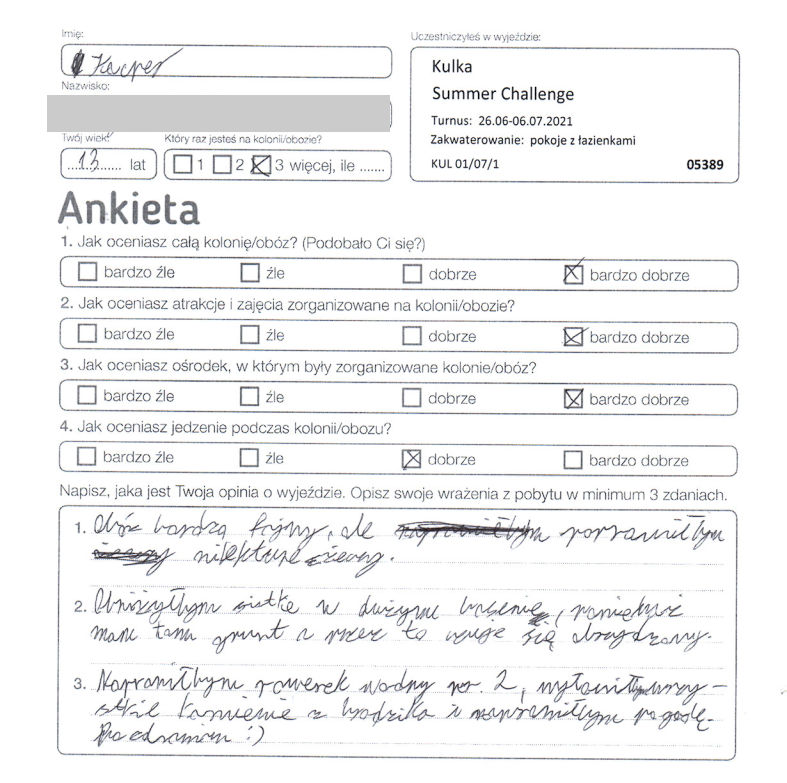 Imię:
Kacper
Nazwisko:
Twój wiek:
13 lat
Który raz jesteś na kolonii/obozie?
1 2 3 więcej, ile ......
Uczestniczyłeś w wyjeździe:
Kulka
Summer Challenge
Turnus: 26.06-06.07.2021
Zakwaterowanie: pokoje z łazienkami
KUL 01/07/1 05389
Ankieta
1. Jak oceniasz całą kolonię/obóz? (Podobało Ci się?)
bardzo źle źle dobrze bardzo dobrze
2. Jak oceniasz atrakcje i zajęcia zorganizowane na kolonii/obozie?
bardzo źle źle dobrze bardzo dobrze
3. Jak oceniasz ośrodek, w którym były zorganizowane kolonie/obóz?
bardzo źle źle dobrze bardzo dobrze
4. Jak oceniasz jedzenie podczas kolonii/obozu?
bardzo źle źle dobrze bardzo dobrze
Napisz, jaka jest Twoja opinia o wyjeździe. Opisz swoje wrażenia z pobytu w minimum 3 zdaniach.
1. Obóz bardzo fajny, ale poprawiłbym
niektóre rzeczy.
2. Obniżyłbym siatkę w dużym basenie, ponieważ
mam tam grunt a przez to czuję się
3. Naprawiłbym rowerek wodny nr. 2, wyłowiłbym wszy-
stkie kamienie z brodzika i naprawiłbym pogodę.
Pozdrawiam :)